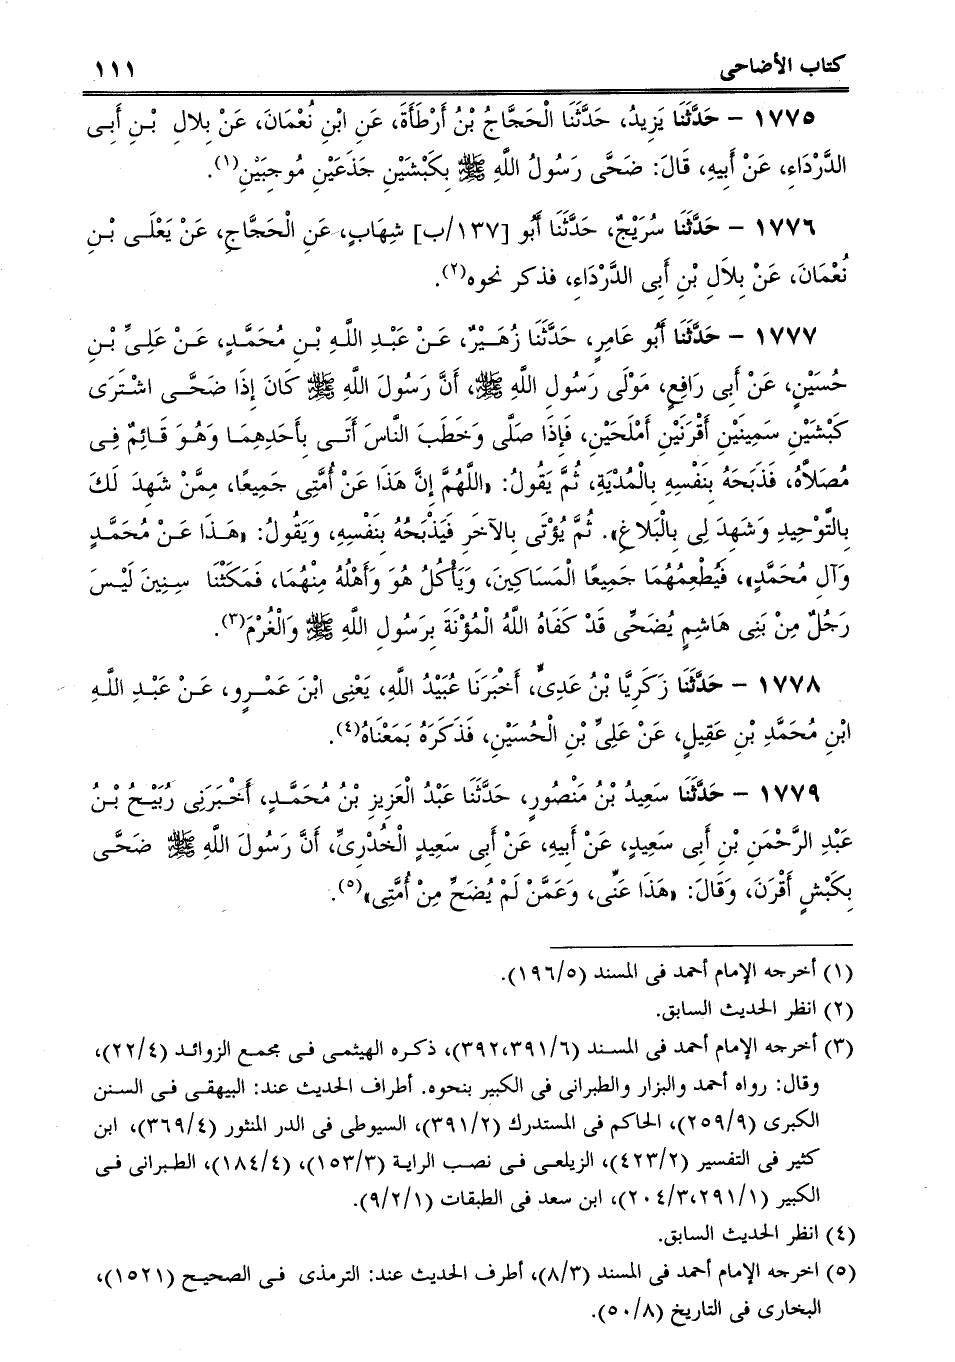 كتاب الأضاحى ١١١
١٧٧٥ - حَدَّثَنَا يَزِيدُ، حَدَّثَنَا الْحَجَّاجُ بْنُ أَرْطَأَةَ، عَنِ ابْنِ نُعْمَانَ، عَنْ بِلالِ بْنِ أَبِى
الدَّرْدَاءِ، عَنْ أَبِيهِ، قَالَ: ضَحَّى رَسُولُ اللَّهِ ﷺ بِكَبْشَيْنِ جَذَعَيْنِ مُوجِبَيْنِ(١).
١٧٧٦ - حَدَّثَنَا سُرَيْجٌ، حَدَّثَنَا أَبُو [١٣٧/ب] شِهَابٍ، عَنِ الْحَجَّاجِ، عَنْ يَعْلَى بْنِ
نُعْمَانَ، عَنْ بِلاَلِ بْنِ أَبِى الدَّرْدَاءِ، فذكر نحوه(٢).
١٧٧٧ - حَدَّثَنَا أَبُو عَامِرٍ، حَدَّثَنَا زُهَيْرٌ، عَنْ عَبْدِ اللَّهِ بْنِ مُحَمَّدٍ، عَنْ عَلِىِّ بْنِ
حُسَيْنٍ، عَنْ أَبِى رَافِعٍ، مَوْلَى رَسُولِ اللَّهِ ﷺ، أَنَّ رَسُولَ اللَّهِ ﷺ كَانَ إِذَا ضَحَّى اشْتَرَى
كَبْشَيْنِ سَمِينَيْنِ أَقْرَنَيْنِ أَمْلَحَيْنِ، فَإِذَا صَلَّى وَخَطَبَ النَّاسَ أَتَى بِأَحَدِهِمَا وَهُوَ قَائِمٌ فِى
مُصَلاَّهُ، فَذَبَحَهُ بِنَفْسِهِ بِالْمُدْيَةِ، ثُمَّ يَقُولُ: «اللَّهُمَّ إِنَّ هَذَا عَنْ أُمَّتِى جَمِيعًا، مِمَّنْ شَهِدَ لَكَ
بِالتَّوْحِيدِ وَشَهِدَ لِى بِالْبَلاَغِ». ثُمَّ يُؤْتَى بِالآخَرِ فَيَذْبَحُهُ بِنَفْسِهِ، وَيَقُولُ: «هَذَا عَنْ مُحَمَّدٍ
وَآلِ مُحَمَّدٍ»، فَيُطْعِمُهُمَا جَمِيعًا الْمَسَاكِينَ، وَيَأْكُلُ هُوَ وَأَهْلُهُ مِنْهُمَا، فَمَكَثْنَا سِنِينَ لَيْسَ
رَجُلٌ مِنْ بَنِى هَاشِمٍ يُضَحِّى قَدْ كَفَاهُ اللَّهُ الْمُؤْنَةَ بِرَسُولِ اللَّهِ ﷺ وَالْغُرْمَ(٣).
١٧٧٨ - حَدَّثَنَا زَكَرِيَّا بْنُ عَدِىٍّ، أَخْبَرَنَا عُبَيْدُ اللَّهِ، يَعْنِى ابْنَ عَمْرٍو، عَنْ عَبْدِ اللَّهِ
ابْنِ مُحَمَّدِ بْنِ عَقِيلٍ، عَنْ عَلِىِّ بْنِ الْحُسَيْنِ، فَذَكَرَهُ بَمَعْنَاهُ(٤).
١٧٧٩ - حَدَّثَنَا سَعِيدُ بْنُ مَنْصُورٍ، حَدَّثَنَا عَبْدُ الْعَزِيزِ بْنُ مُحَمَّدٍ، أَخْبَرَنِى رُبَيْحُ بْنُ
عَبْدِ الرَّحْمَنِ بْنِ أَبِى سَعِيدٍ، عَنْ أَبِيهِ، عَنْ أَبِى سَعِيدٍ الْخُدْرِىِّ، أَنَّ رَسُولَ اللَّهِ ﷺ ضَحَّى
بِكَبْشٍ أَقْرَنَ، وَقَالَ: «هَذَا عَنِّى، وَعَمَّنْ لَمْ يُضَحِّ مِنْ أُمَّتِى»(٥).
(١) أخرجه الإمام أحمد فى المسند (١٩٦/٥).
(٢) انظر الحديث السابق.
(٣) أخرجه الإمام أحمد فى المسند (٣٩٢،٣٩١/٦)، ذكره الهيثمى فى مجمع الزوائد (٢٢/٤)،
وقال: رواه أحمد والبزار والطبرانى فى الكبير بنحوه. أطراف الحديث عند: البيهقى فى السنن
الكبرى (٢٥٩/٩)، الحاكم فى المستدرك (٣٩١/٢)، السيوطى فى الدر المنثور (٣٦٩/٤)، ابن
كثير فى التفسير (٤٢٣/٢)، الزيلعى فى نصب الراية (١٥٣/٣)، (١٨٤/٤)، الطبرانى فى
الكبير (٢٠٤/٣،٢٩١/١)، ابن سعد فى الطبقات (٩/٢/١).
(٤) انظر الحديث السابق.
(٥) اخرجه الإمام أحمد فى المسند (٨/٣)، أطرف الحديث عند: الترمذى فى الصحيح (١٥٢١)،
البخارى فى التاريخ (٥٠/٨).